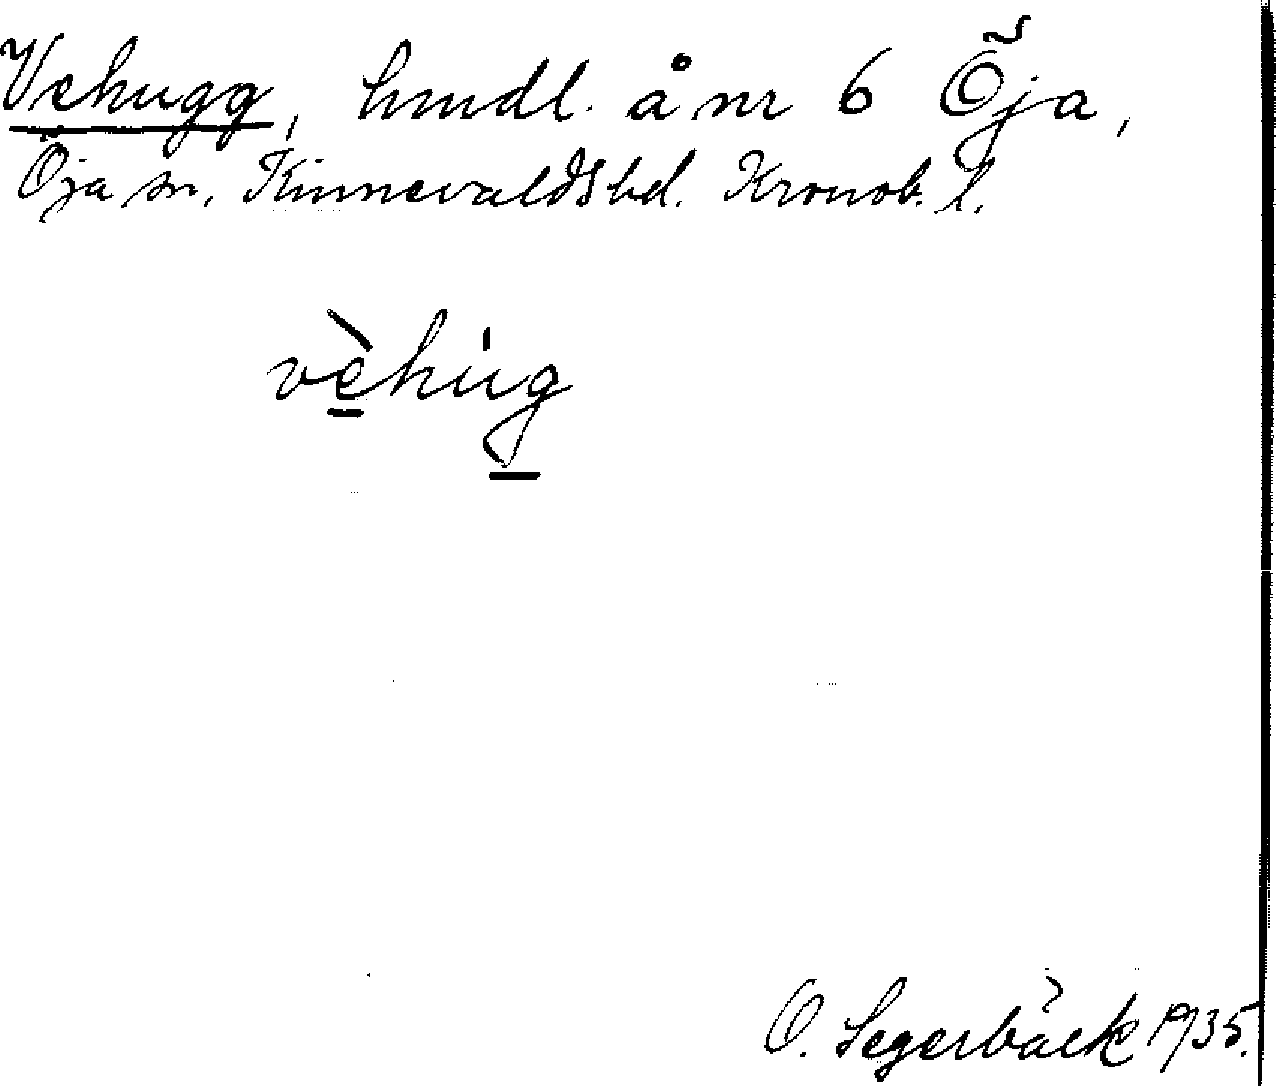 Vehugg, hmdl. å nr 6 Öja,
Öja sn, Kinnevaldshd. Kronob. l.
vèhùg
O. Segerbäck 1935.